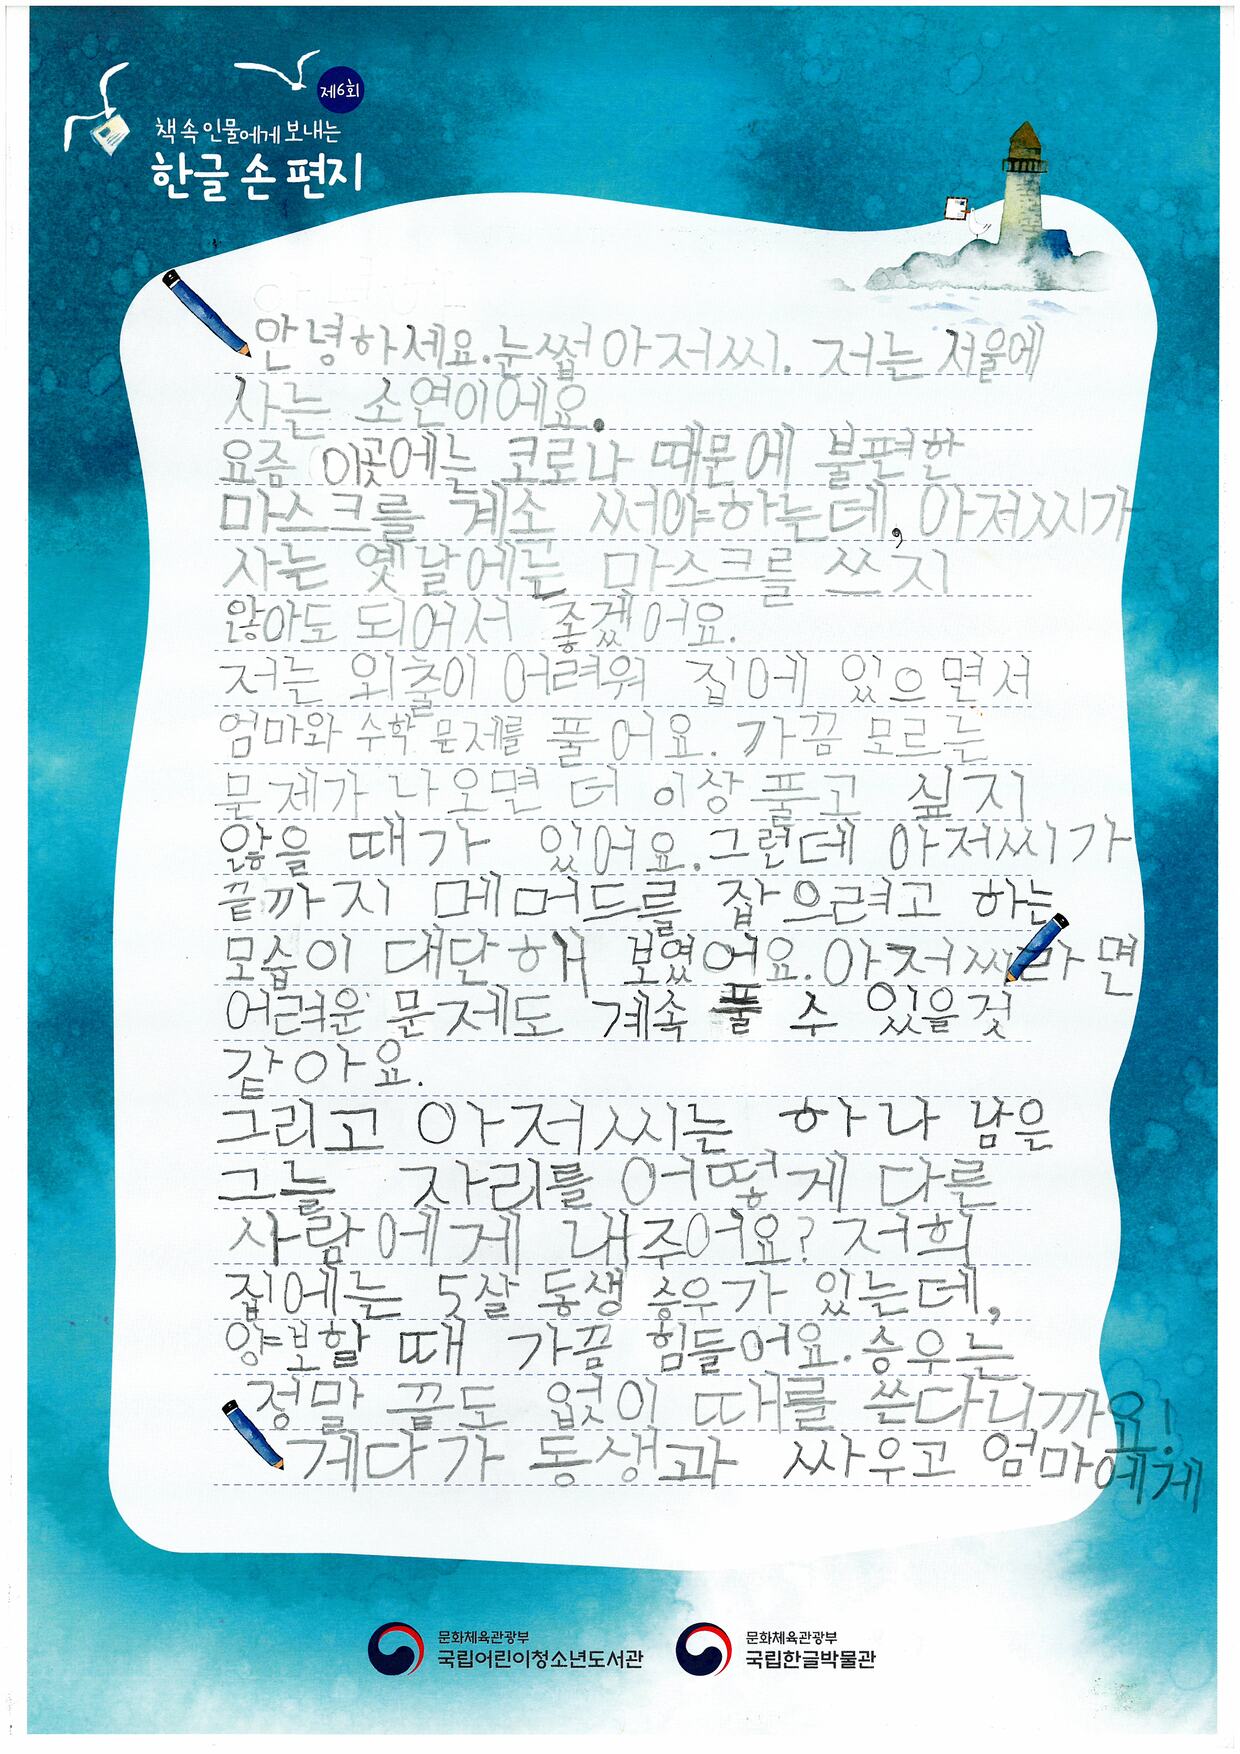 제6회
책 속 인물에게 보내는
한글 손 편지
안녕하세요.눈썹 아저씨. 저는 서울에
사는 소연이에요.
요즘 이곳에는 코로나 때문에 불편한
마스크를 계소 써야하는데, 아저씨가
사는 옛날에는 마스크를 쓰지
않아도 되어서 좋겠어요.
저는 외출이 어려워 집에 있으면서
엄마와 수학 문제를 풀어요. 가끔 모르는
문제가 나오면 더 이상 풀고 싶지
않을 때가 있어요.그런데 아저씨가
끝까지 메머드를 잡으려고 하는
모습이 대단해 보였어요.아저씨라면
어려운 문제도 계속 풀 수 있을것
같아요.
그리고 아저씨는 하나 남은
그늘 자리를 어떻게 다른
사람에게 내주어요? 저희
집에는 5살 동생 승우가 있는데,
양보할 때 가끔 힘들어요.승우는
정말 끝도 없이 때를 쓴다니까요!
게다가 동생과 싸우고 엄마에게
문화체육관광부
국립어린이청소년도서관
문화체육관광부
국립한글박물관